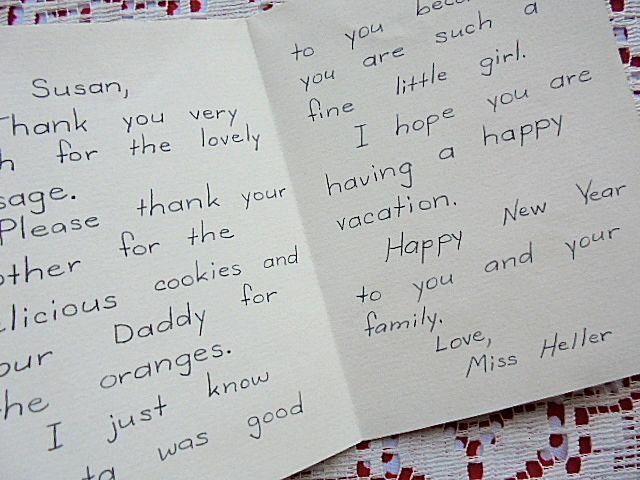 Susan,
Thank you very
h for the lovely
sage.
Please thank your
other for the
licious cookies and
our Daddy for
he oranges.
I just know
ta was good
to you beca
you are such a
fine little girl.
I hope you are
having a happy
vacation.
Happy New Year
to you and your
family.
Love,
Miss Heller